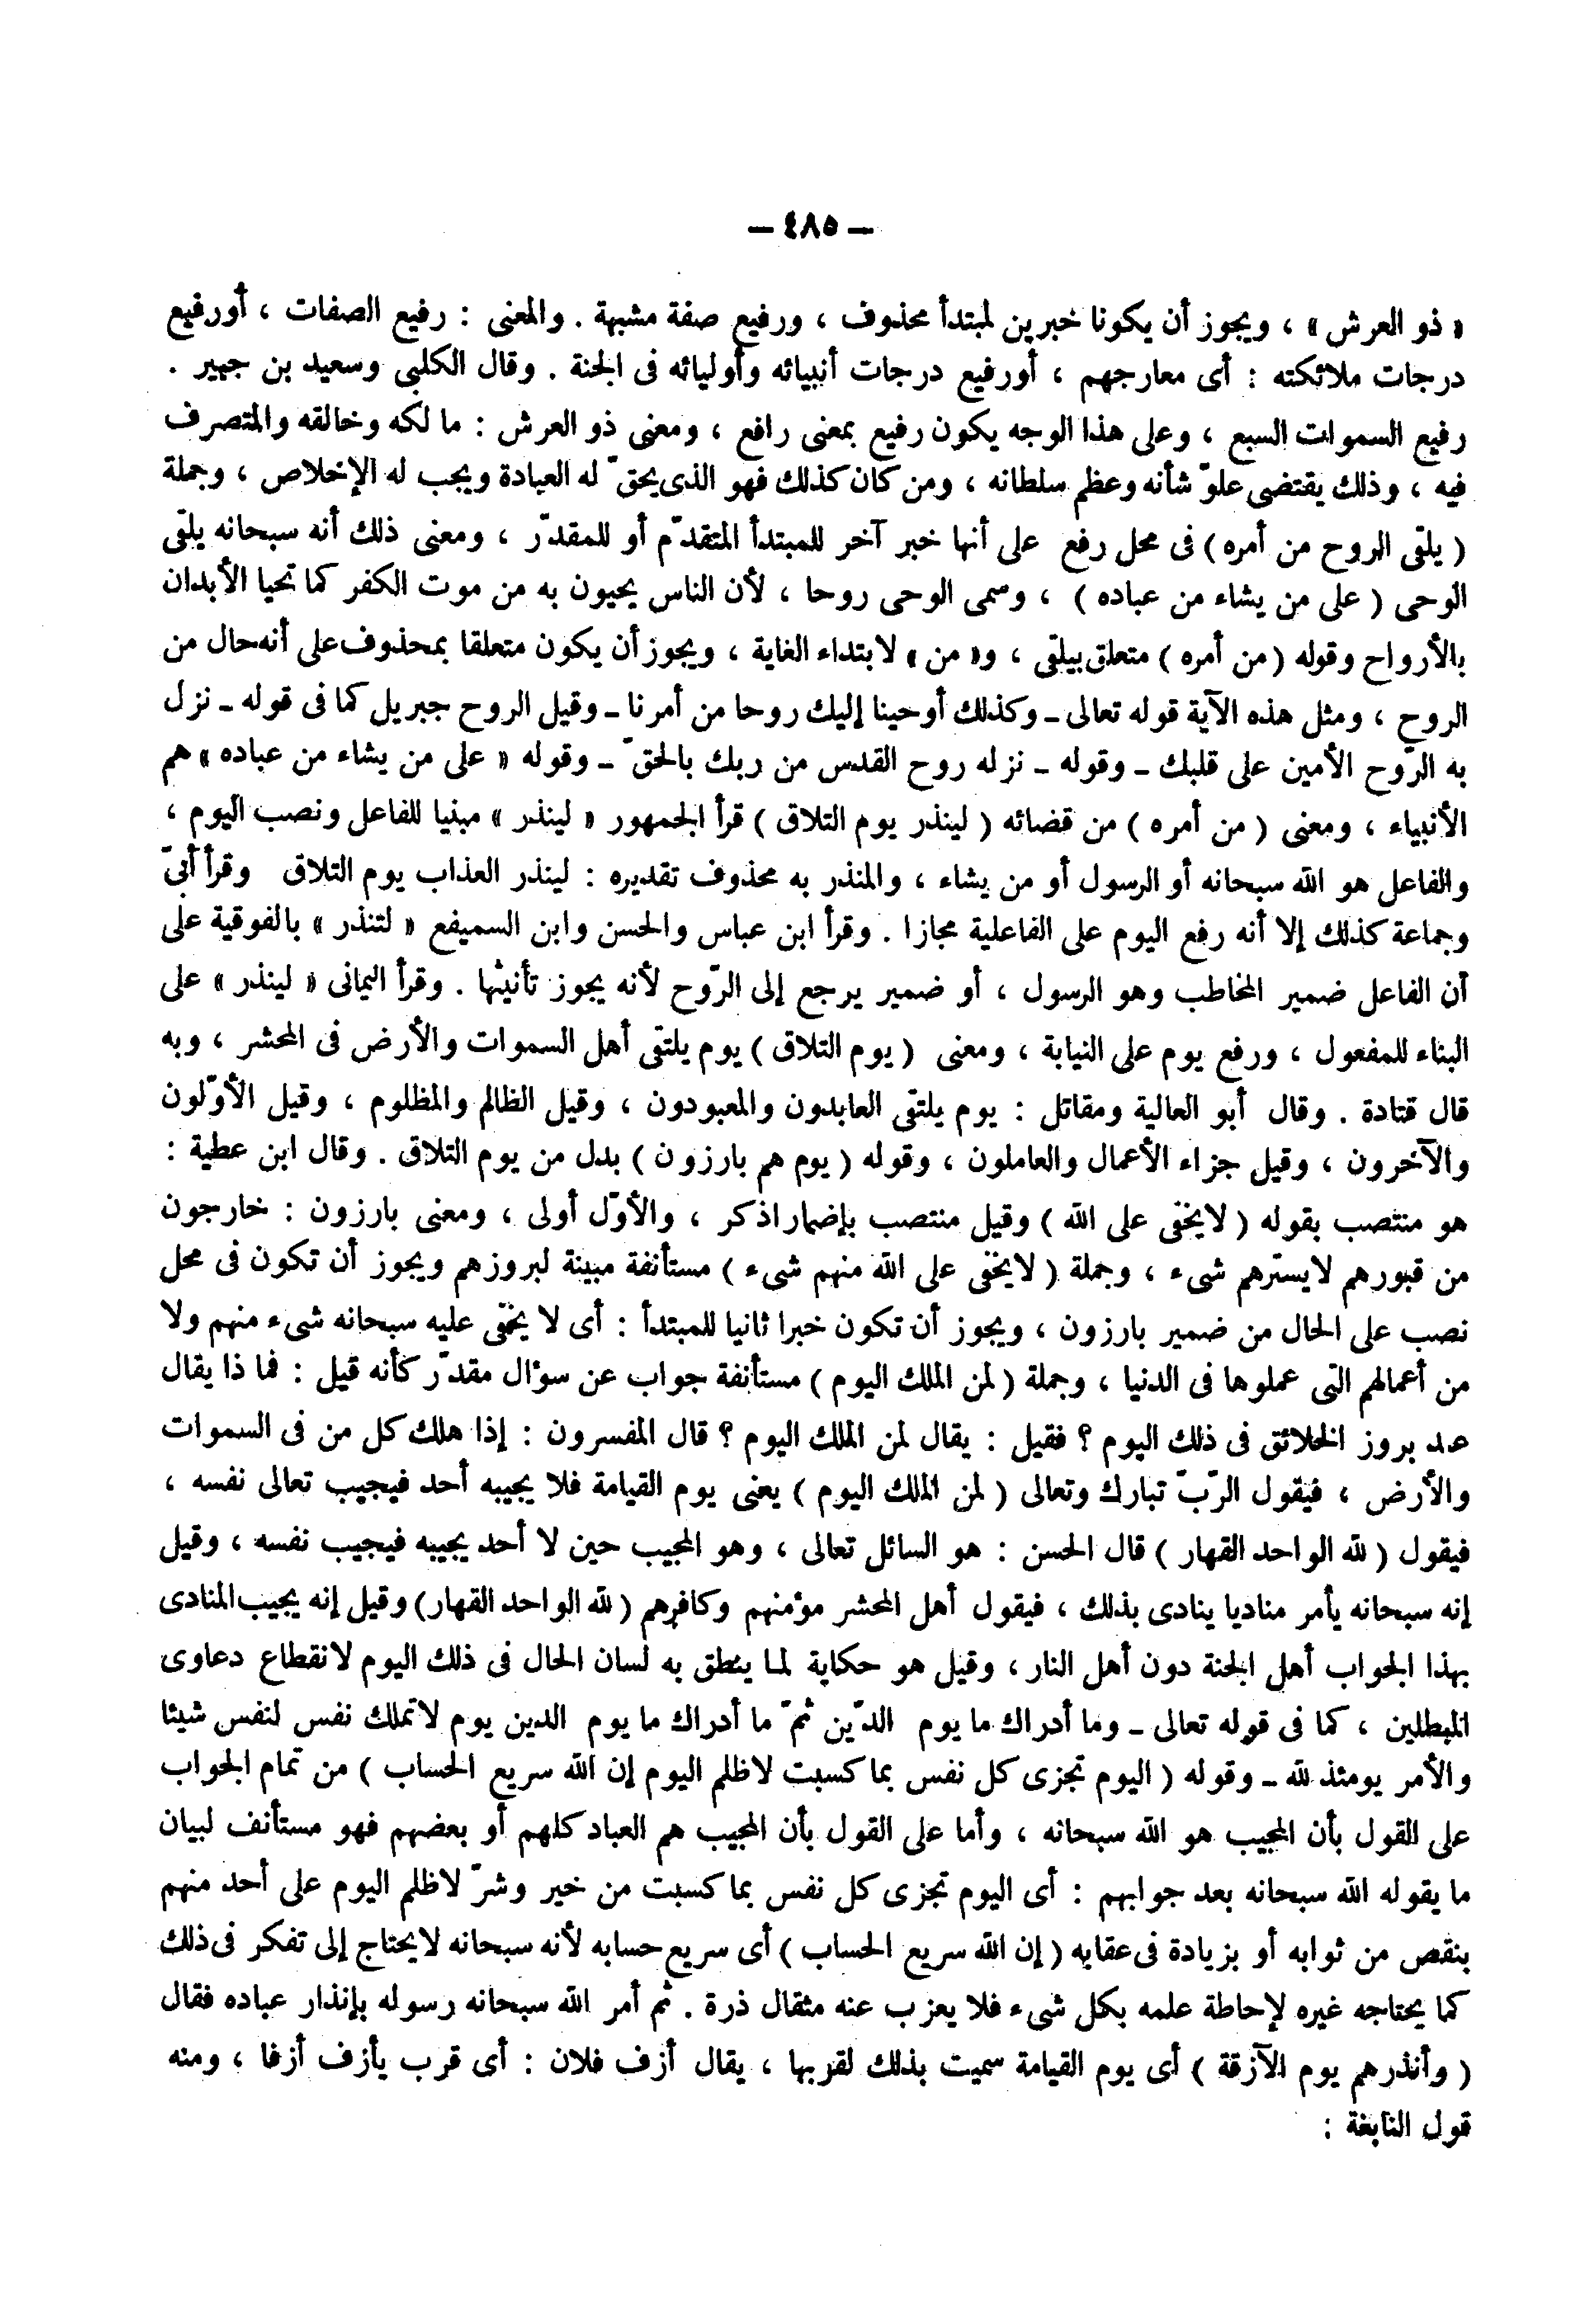 — ٤٨٥ —
« ذو العرش » ، ويجوز أن يكونا خبرين لمبتدأ محذوف ، ورفيع صفة مشبهة . والمعنى : رفيع الصفات ، أورفيع
درجات ملائكته : أى معارجهم ، أورفيع درجات أنبيائه وأوليائه فى الجنة . وقال الكلبى وسعيد بن جبير .
رفيع السموات السبع ، وعلى هذا الوجه يكون رفيع بمعنى رافع ، ومعنى ذو العرش : مالكه وخالقه والمتصرف
فيه ، وذلك يقتضى علوّ شأنه وعظم سلطانه ، ومن كان كذلك فهو الذى يحقّ له العبادة ويجب له الإخلاص ، وجملة
( يلقى الروح من أمره ) فى محل رفع على أنها خبر آخر للمبتدأ المتقدّم أو للمقدّر ، ومعنى ذلك أنه سبحانه يلقى
الوحى ( على من يشاء من عباده ) ، وسمى الوحى روحا ، لأن الناس يحيون به من موت الكفر كما تحيا الأبدان
بالأرواح وقوله ( من أمره ) متعلق بيلقى ، و« من » لابتداء الغاية ، ويجوز أن يكون متعلقا بمحذوف على أنه حال من
الروح ، ومثل هذه الآية قوله تعالى ـ وكذلك أوحينا إليك روحا من أمرنا ـ وقيل الروح جبريل كما فى قوله ـ نزل
به الرّوح الأمين على قلبك ـ وقوله ـ نزله روح القدس من ربك بالحقّ ـ وقوله « على من يشاء من عباده » هم
الأنبياء ، ومعنى ( من أمره ) من قضائه ( لينذر يوم التلاق ) قرأ الجمهور « لينذر » مبنيا للفاعل ونصب اليوم ،
والفاعل هو الله سبحانه أو الرسول أو من يشاء ، والمنذر به محذوف تقديره : لينذر العذاب يوم التلاق وقرأ أبىّ
وجماعة كذلك إلا أنه رفع اليوم على الفاعلية مجازا . وقرأ ابن عباس والحسن وابن السميفع « لتنذر » بالفوقية على
أن الفاعل ضمير المخاطب وهو الرسول ، أو ضمير يرجع إلى الرّوح لأنه يجوز تأنيثها . وقرأ اليمانى « لينذر » على
البناء للمفعول ، ورفع يوم على النيابة ، ومعنى ( يوم التلاق ) يوم يلتقى أهل السموات والأرض فى المحشر ، وبه
قال قتادة . وقال أبو العالية ومقاتل : يوم يلتقى العابدون والمعبودون ، وقيل الظالم والمظلوم ، وقيل الأوّلون
والآخرون ، وقيل جزاء الأعمال والعاملون ، وقوله ( يوم هم بارزون ) بدل من يوم التلاق . وقال ابن عطية :
هو منتصب بقوله ( لايخفى على الله ) وقيل منتصب بإضمار اذكر ، والأوّل أولى ، ومعنى بارزون : خارجون
من قبورهم لايسترهم شىء ، وجملة ( لايخفى على الله منهم شىء ) مستأنفة مبينة لبروزهم ويجوز أن تكون فى محل
نصب على الحال من ضمير بارزون ، ويجوز أن تكون خبرا ثانيا للمبتدأ : أى لا يخفى عليه سبحانه شىء منهم ولا
من أعمالهم التى عملوها فى الدنيا ، وجملة ( لمن الملك اليوم ) مستأنفة جواب عن سؤال مقدّر كأنه قيل : فما ذا يقال
عند بروز الخلائق فى ذلك اليوم ؟ فقيل : يقال لمن الملك اليوم ؟ قال المفسرون : إذا هلك كل من فى السموات
والأرض ، فيقول الرّبّ تبارك وتعالى ( لمن الملك اليوم ) يعنى يوم القيامة فلا يجيبه أحد فيجيب تعالى نفسه ،
فيقول ( لله الواحد القهار ) قال الحسن : هو السائل تعالى ، وهو المجيب حين لا أحد يجيبه فيجيب نفسه ، وقيل
إنه سبحانه يأمر مناديا ينادى بذلك ، فيقول أهل المحشر مؤمنهم وكافرهم ( لله الواحد القهار ) وقيل إنه يجيب المنادى
بهذا الجواب أهل الجنة دون أهل النار ، وقيل هو حكاية لما ينطق به لسان الحال فى ذلك اليوم لانقطاع دعاوى
المبطلين ، كما فى قوله تعالى ـ وما أدراك ما يوم الدّين ثمّ ما أدراك ما يوم الدين يوم لاتملك نفس لنفس شيئا
والأمر يومئذ لله ـ وقوله ( اليوم تجزى كل نفس بما كسبت لاظلم اليوم إن الله سريع الحساب ) من تمام الجواب
على القول بأن المجيب هو الله سبحانه ، وأما على القول بأن المجيب هم العباد كلهم أو بعضهم فهو مستأنف لبيان
ما يقوله الله سبحانه بعد جوابهم : أى اليوم تجزى كل نفس بما كسبت من خير وشرّ لاظلم اليوم على أحد منهم
بنقص من ثوابه أو بزيادة فى عقابه ( إن الله سريع الحساب ) أى سريع حسابه لأنه سبحانه لايحتاج إلى تفكر فى ذلك
كما يحتاجه غيره لإحاطة علمه بكل شىء فلا يعزب عنه مثقال ذرة . ثم أمر الله سبحانه رسوله بإنذار عباده فقال
( وأنذرهم يوم الآزقة ) أى يوم القيامة سميت بذلك لقربها ، يقال أزف فلان : أى قرب يأزف أزفا ، ومنه
قول النابغة :